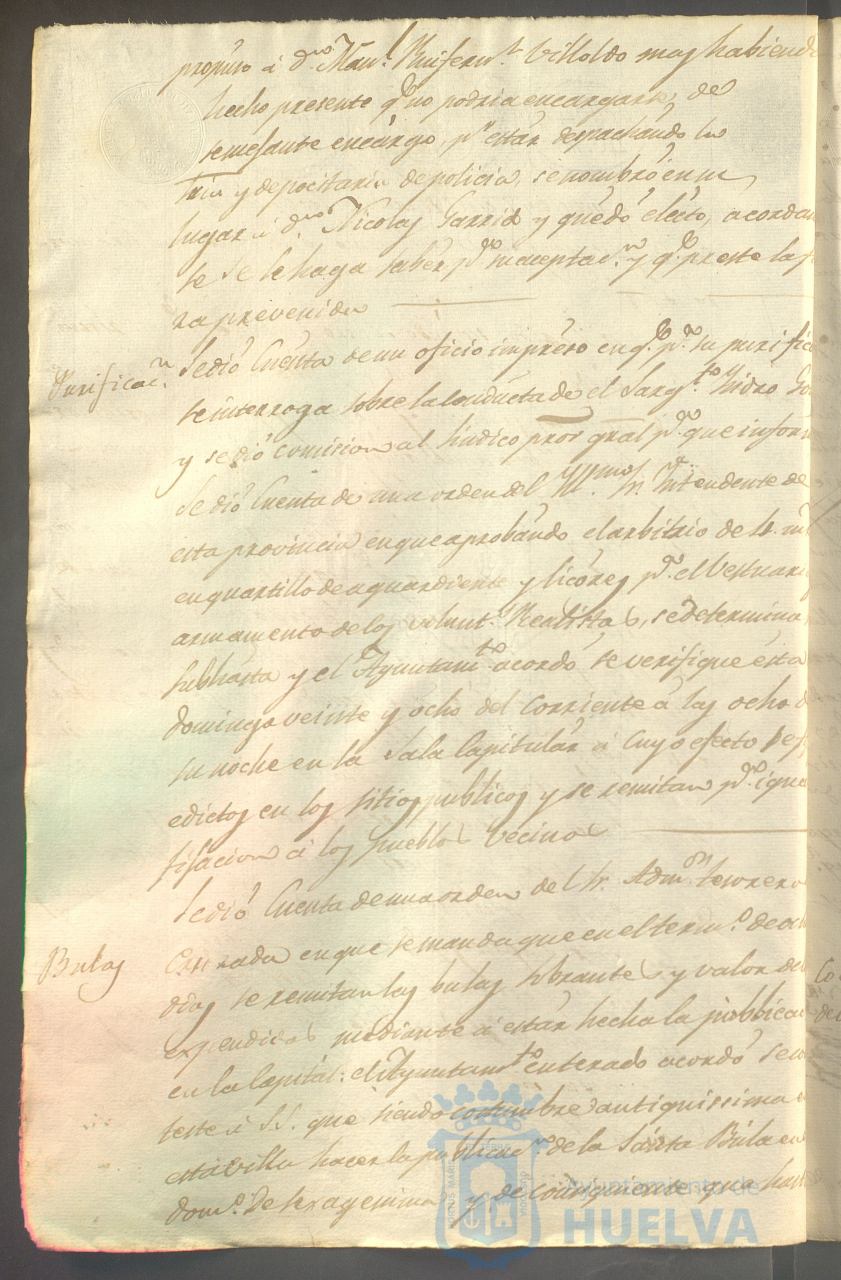 propuso á dⁿ Manˡ Ruifernᶻ Villoldo mas habiendo
hecho presente qᵉ no podria encargarse de
semejante encargo, pʳ estar despachando la
y depocitaria de policia, se nombró en su
lugar á dⁿ Nicolas Garrid y quedó electo, acordan
se le haga saber pᵃ su aceptacⁿ y qᵉ preste la
ra prevenida
Purificacⁿ.
Se dió Cuenta de un oficio impreso en qᵉ pᵃ su purific
se interroga sobre la conducta de el Sargᵗᵒ Ysidro
y se dió comision al sindico procʳ gral pᵃ que inform
Se dió Cuenta de una orden del Yllmo Sr. Yntendente de
esta provincia en que aprobando el arbitrio de
en quartillo de aguardiente y licores pᵃ el Vestuari
armamento de los volunts Realistas, se determina
subhasta y el Ayuntamᵗᵒ acordó se verifique esta
domingo veinte y ocho del corriente á las ocho d
su noche en la Sala Capitular á cuyo efecto se
edictos en los sitios publicos y se remitan pᵃ igua
fijacion á los pueblos vecinos
Se dió Cuenta de una orden del Sr. Admᵒʳ tesorero
Bulas
Cruzada en que se manda que en el termᵒ de
dias se remitan las bulas sobrantes y valor de
expendidas mediante á estar hecha la publica
en la Capital: el Ayuntamᵗᵒ enterado acordó se
teste á S.S. que siendo costumbre antiquissima
esta villa hacer la publicacⁿ de la Santa Bula en
domᵒ de sexagesima y de consiguiente que has
Ayuntamiento de
HUELVA